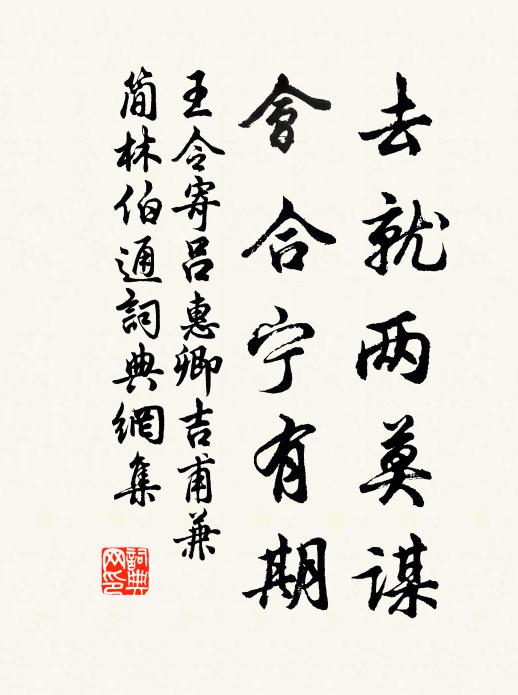 去就两莫谋
會合宁有期
王令寄吕惠卿吉甫兼
简林伯通詞典網集
詞典
网印